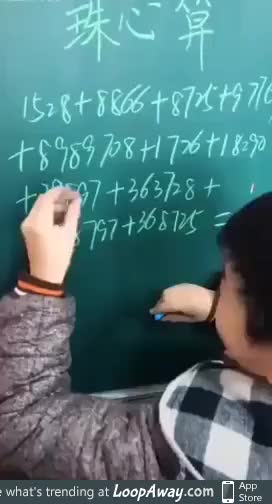 珠心算
1528+8866+8725+9776
+8989708+1726+18290
+363728+
797+368725=
e what's trending at LoopAway.com App Store